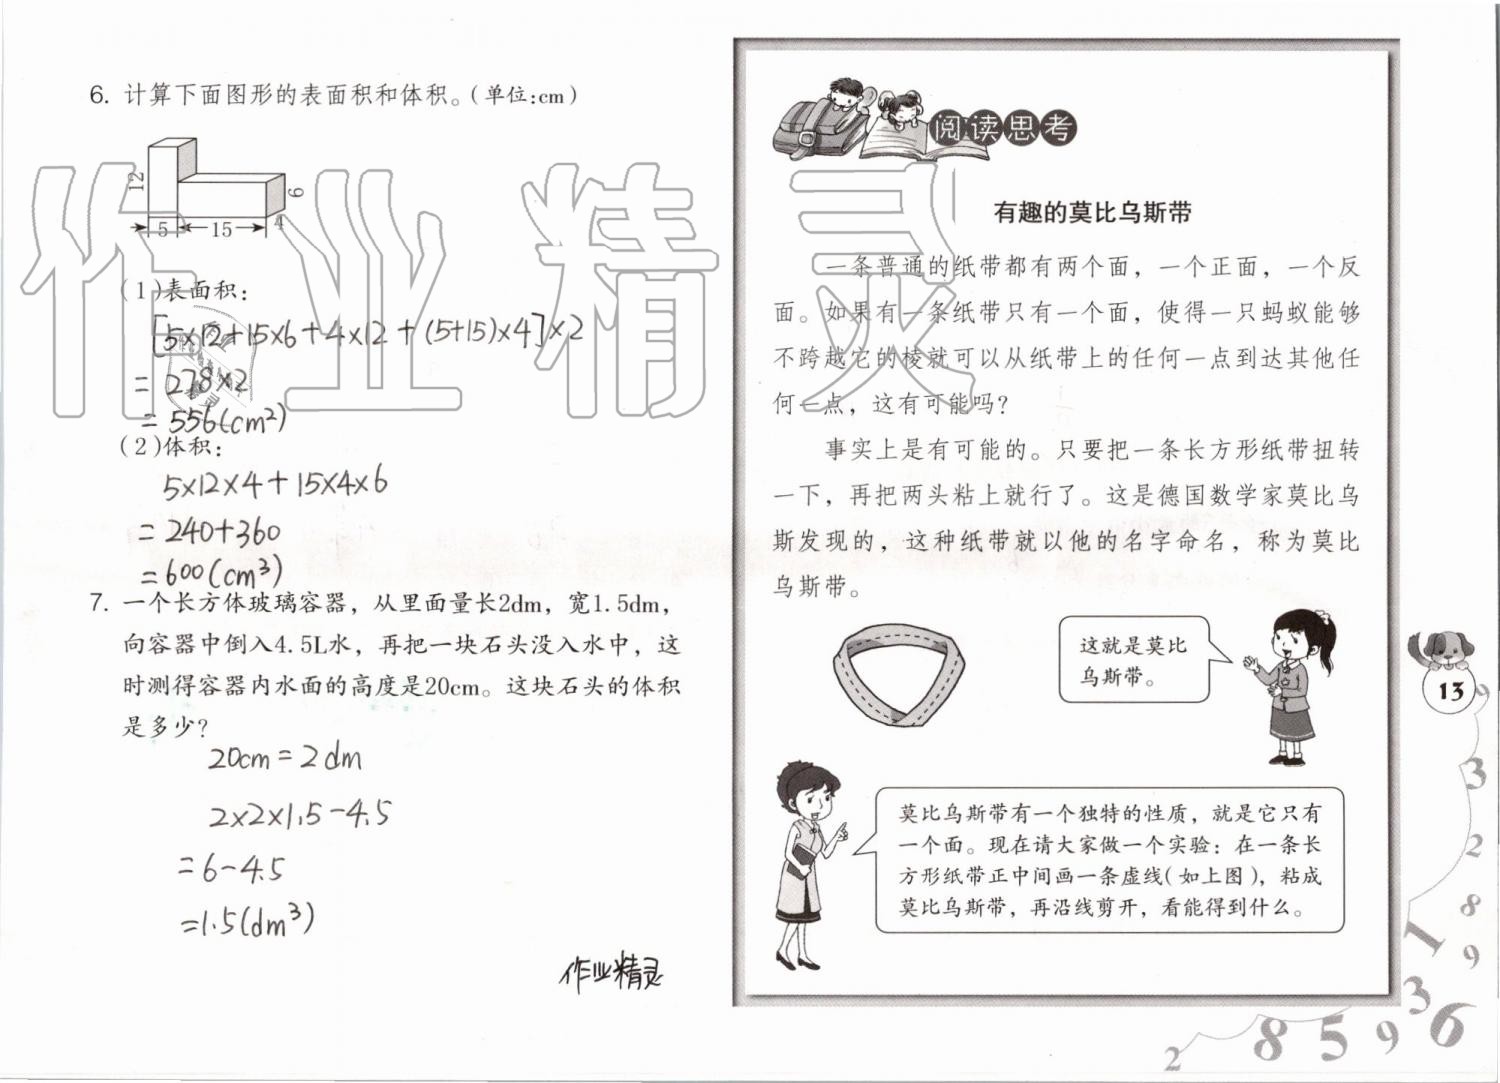 6. 计算下面图形的表面积和体积。(单位:cm)
12
6
5
15
4
(1)表面积:
[5×12+15×6+4×12+(5+15)×4]×2
=278×2
=556(cm²)
(2)体积:
5×12×4+15×4×6
=240+360
=600(cm³)
7. 一个长方体玻璃容器，从里面量长2dm，宽1.5dm，
向容器中倒入4.5L水，再把一块石头没入水中，这
时测得容器内水面的高度是20cm。这块石头的体积
是多少?
20cm=2dm
2×2×1.5-4.5
=6-4.5
=1.5(dm³)
作业精灵
作业精灵
阅读思考
有趣的莫比乌斯带
一条普通的纸带都有两个面，一个正面，一个反
面。如果有一条纸带只有一个面，使得一只蚂蚁能够
不跨越它的棱就可以从纸带上的任何一点到达其他任
何一点，这有可能吗?
事实上是有可能的。只要把一条长方形纸带扭转
一下，再把两头粘上就行了。这是德国数学家莫比乌
斯发现的，这种纸带就以他的名字命名，称为莫比
乌斯带。
这就是莫比
乌斯带。
莫比乌斯带有一个独特的性质，就是它只有
一个面。现在请大家做一个实验：在一条长
方形纸带正中间画一条虚线(如上图)，粘成
莫比乌斯带，再沿线剪开，看能得到什么。
13
9
3
2
8
9
1
3
6
9
5
8
2